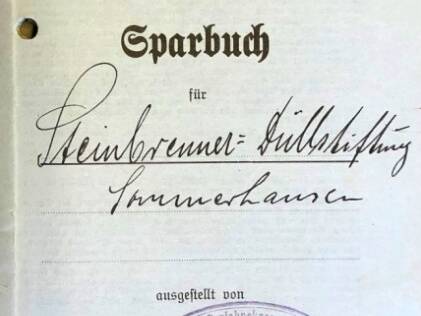 Sparbuch
für
Steinbrenner= Düllstiftung
Sommerhausen
ausgestellt von